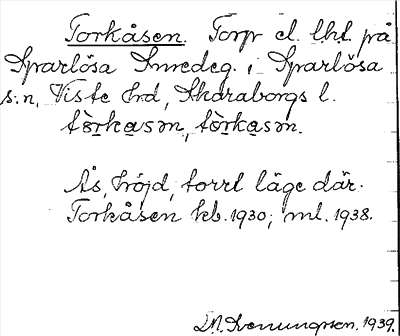 Torkåsen. Torp el. lht. på
Sparlösa Inredeg. i Sparlösa
s:n, Viste hrd, Skaraborgs l.
tòrkasm, tòrkasm.
Ås, höjd, torrt läge där.
Torkåsen kb. 1930; ml. 1938.
1939.